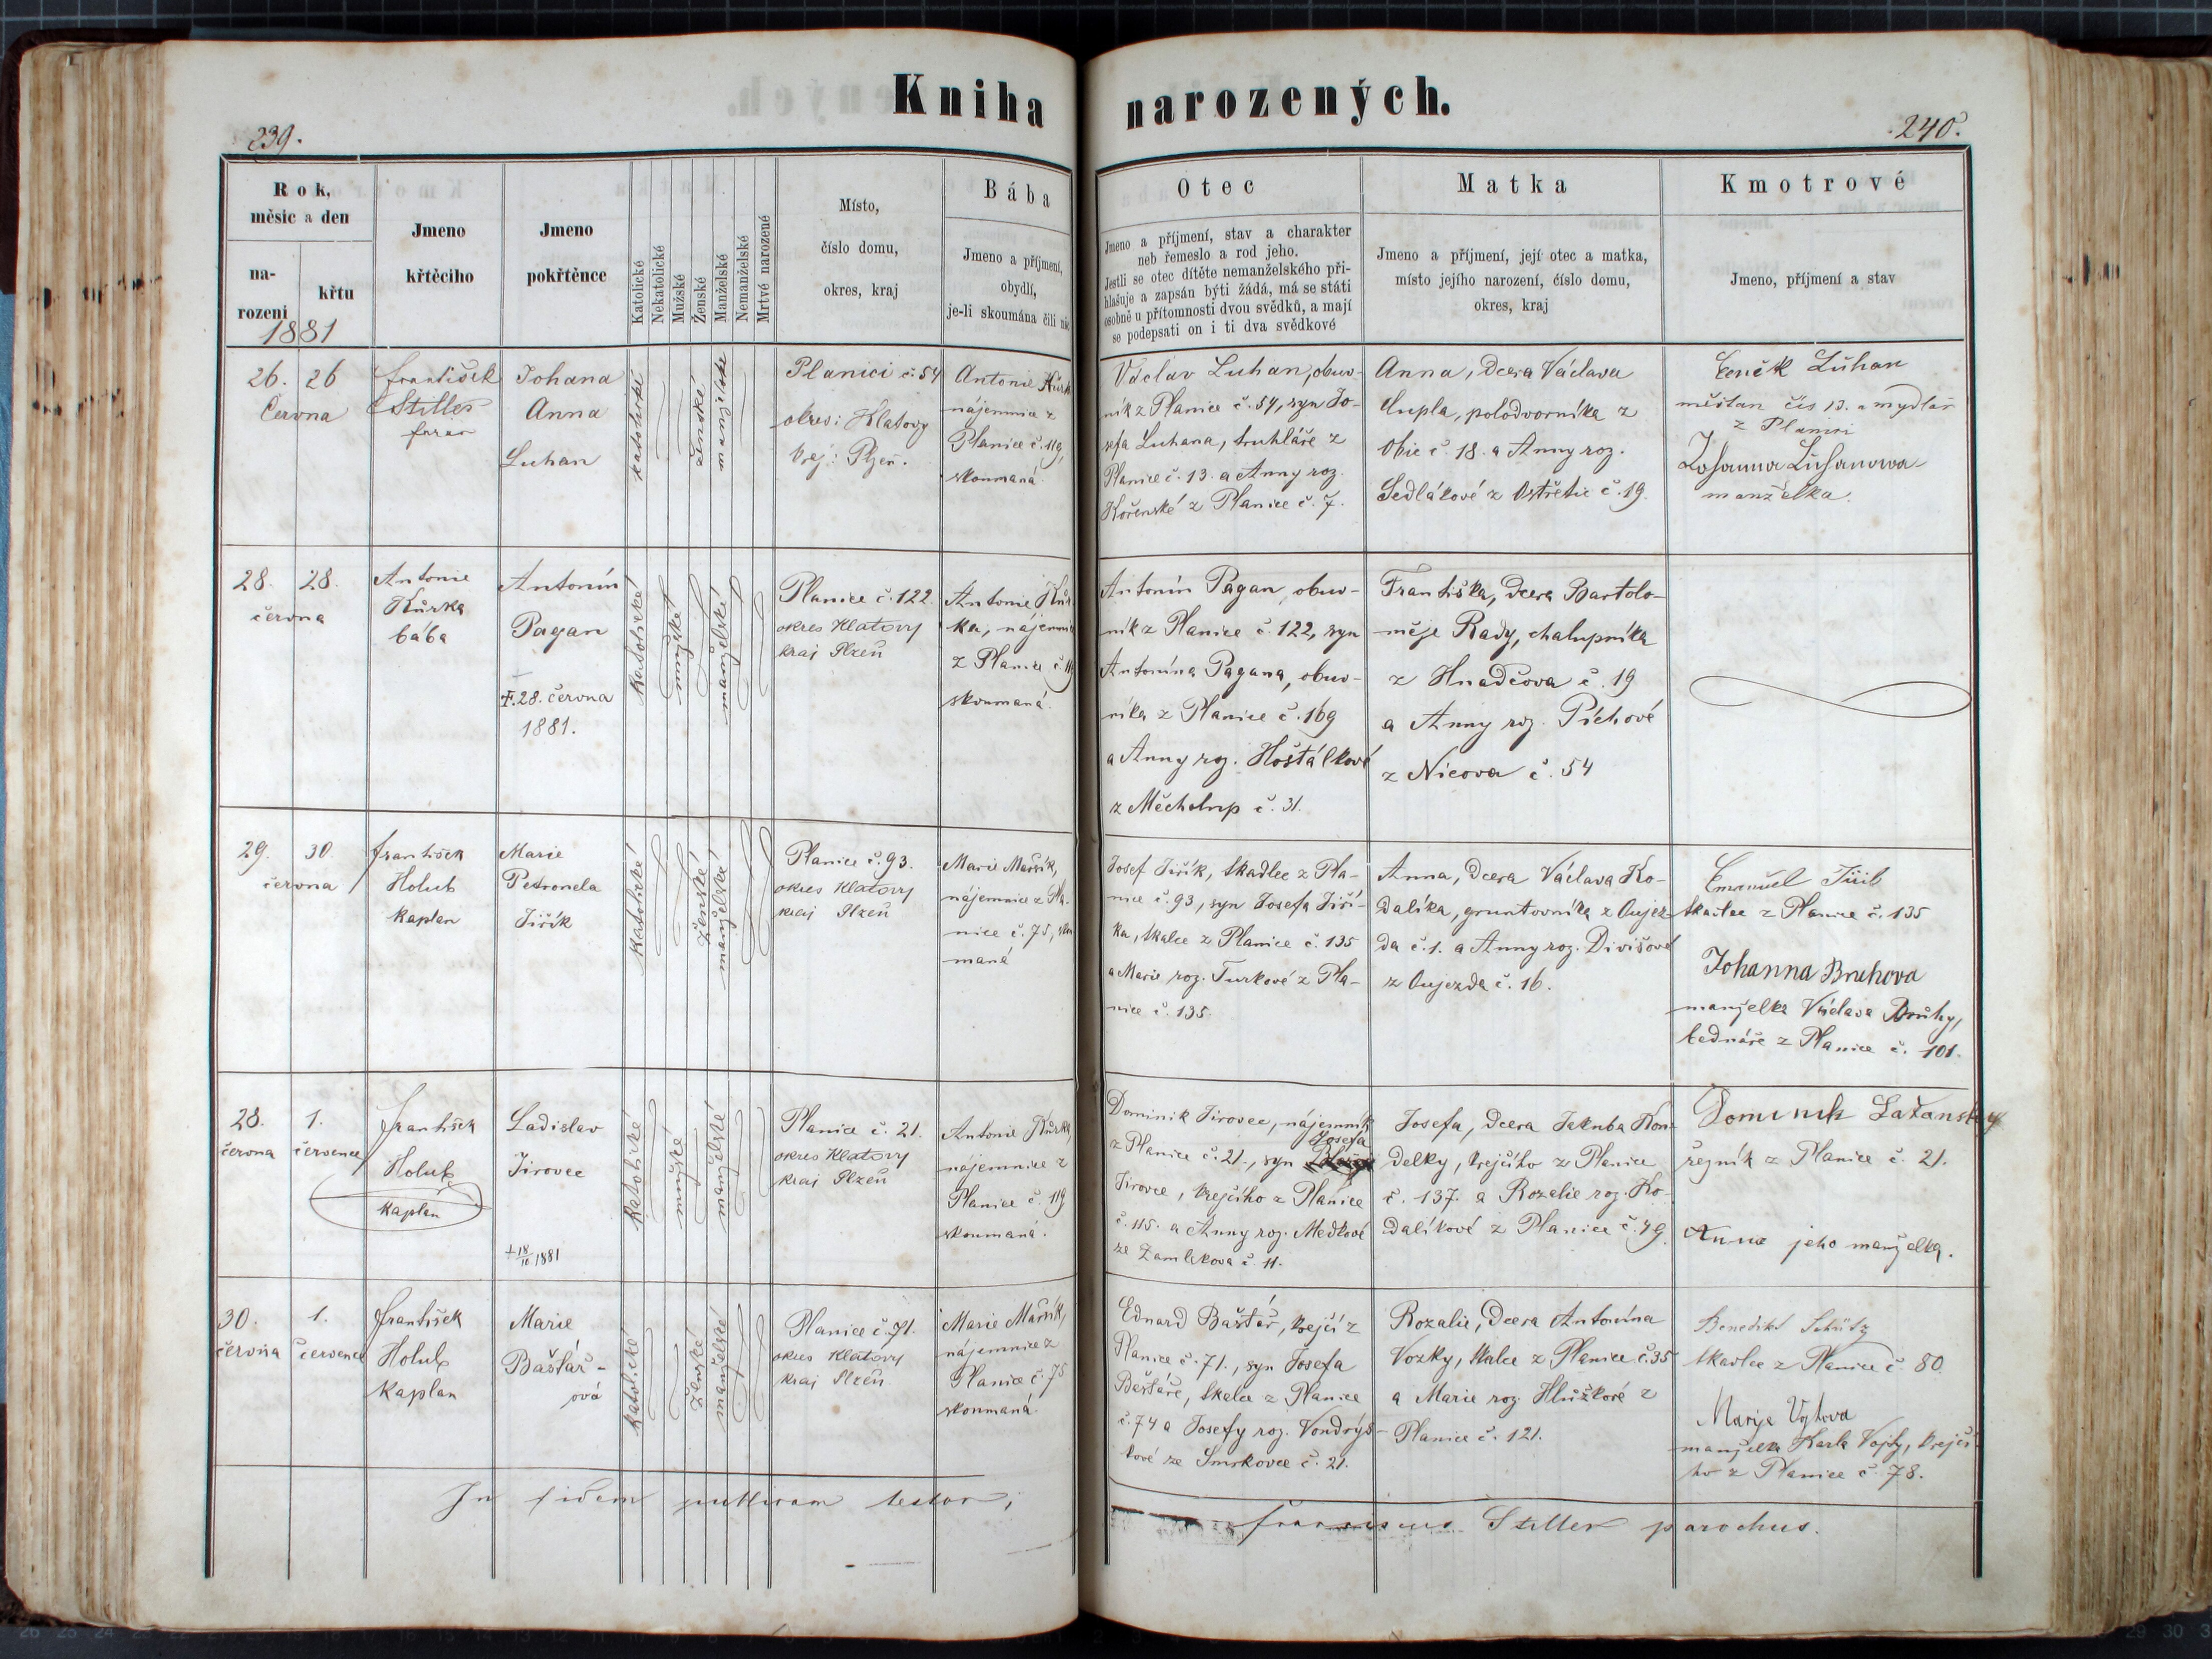 Kniha narozených.
239.
240.
Rok,
měsíc a den
na-
rození
křtu
1881
Jmeno
křtěcího
Jmeno
pokřtěnce
Katolické
Nekatolické
Mužské
Ženské
Manželské
Nemanželské
Mrtvé narozené
Místo,
číslo domu,
okres, kraj
Bába
Jmeno a příjmení,
obydlí,
je-li skoumána čili
Otec
Jmeno a příjmení, stav a charakter
neb řemeslo a rod jeho.
Jestli se otec dítěte nemanželského při-
hlašuje a zapsán býti žádá, má se státi
osobně u přítomnosti dvou svědků, a mají
se podepsati on i ti dva svědkové
Matka
Jmeno a příjmení, její otec a matka,
místo jejího narození, číslo domu,
okres, kraj
Kmotrové
Jmeno, příjmení a stav
26. 26
Června
František
Stiller
farar
Johana
Anna
Luhan
katolické
ženské
manželské
Planici č. 54
okres: Klatovy
kraj: Plzeň.
Antonie Kůrk
nájemnice z
Planice č. 119,
skoumaná.
Václav Luhan, obuv-
ník z Planice č. 54, syn Jo-
sefa Luhana, truhláře z
Planice č. 13. a Anny roz.
Kořenské z Planice č. 7.
Anna, dcera Václava
Cupla, polodvorníka z
Obic č. 18. a Anny roz.
Sedlákové z Ostřetic č. 19.
Luhan
měšťan čís 13. a mydlář
z Planici
Johanna Luhanowa
manželka.
28. 28.
června
Antonie
Kůrka
bába
Antonín
Pagan
†. 28. června
1881.
katolické
mužské
manželské
Planice č. 122.
okres Klatovy
kraj Plzeň
Antonie Kůr-
ka, nájemnice
z Planice č. 119
skoumaná.
Antonín Pagan, obuv-
ník z Planice č. 122, syn
Antonína Pagana, obuv-
níka z Planice č. 169
a Anny roz. Hoštálkové
z Měcholup č. 31.
Františka, dcera Bartolo-
měje Rady, chalupníka
z Hnačova č. 19
a Anny roz. Píchové
z Nicova č. 54
29. 30.
června
František
Holub
kaplan
Marie
Petronela
Jiřík
katolické
ženské
manželské
Planice č. 93.
okres Klatovy
kraj Plzeň
Marie Mařík,
nájemnice z Pla-
nice č. 75, skou
maná
Josef Jiřík, tkadlec z Pla-
nice č. 93, syn Josefa Jiří-
ka, tkalce z Planice č. 135
a Marie roz. Turkové z Pla-
nice č. 135.
Anna, dcera Václava Ko-
dalíka, gruntovníka z Oujez-
da č. 1. a Anny roz. Divišové
z Oujezda č. 16.
Emanuel
tkadlec z Planice č. 135
Johanna Bruhova
manželka Václava Bruhy,
bednáře z Planice č. 101.
28. 1.
června července
František
Holub
kaplan
Ladislav
Jirovec
† 18/10 1881
katolické
mužské
manželské
Planice č. 21.
okres Klatovy
kraj Plzeň
Antonie Kůrka,
nájemnice z
Planice č. 119
skoumaná.
Dominik Jirovec, nájemník
z Planice č. 21., syn Josefa
Jirovce, krejčího z Planice
č. 115. a Anny roz. Medkové
ze Zamlekova č. 11.
Josefa, dcera Jakuba Kon-
delky, krejčího z Planice
č. 137. a Rozalie roz. Ko-
dalíkové z Planice č. 49.
Dominik Lažanský
řezník z Planice č. 21.
Anna jeho manželka.
30. 1.
června července
František
Holub
kaplan
Marie
Baštář-
ová
katolické
ženské
manželské
Planice č. 71.
okres Klatovy
kraj Plzeň
Marie Mařík,
nájemnice z
Planice č. 75
skoumaná.
Eduard Baštář, krejčí z
Planice č. 71., syn Josefa
Baštáře, tkalce z Planice
č. 74 a Josefy roz. Vondrýs-
kové ze Smrkovce č. 21.
Rozalie, dcera Antonína
Vozky, tkalce z Planice č. 35
a Marie roz. Hlůžkové z
Planice č. 121.
Benedikt Schütz
tkadlec z Planice č. 80.
Marije Vojtova
manželka Karla Vojty, krejčí-
ho z Planice č. 78.
In fidem publicam testor,
Franciscus Stiller parochus.